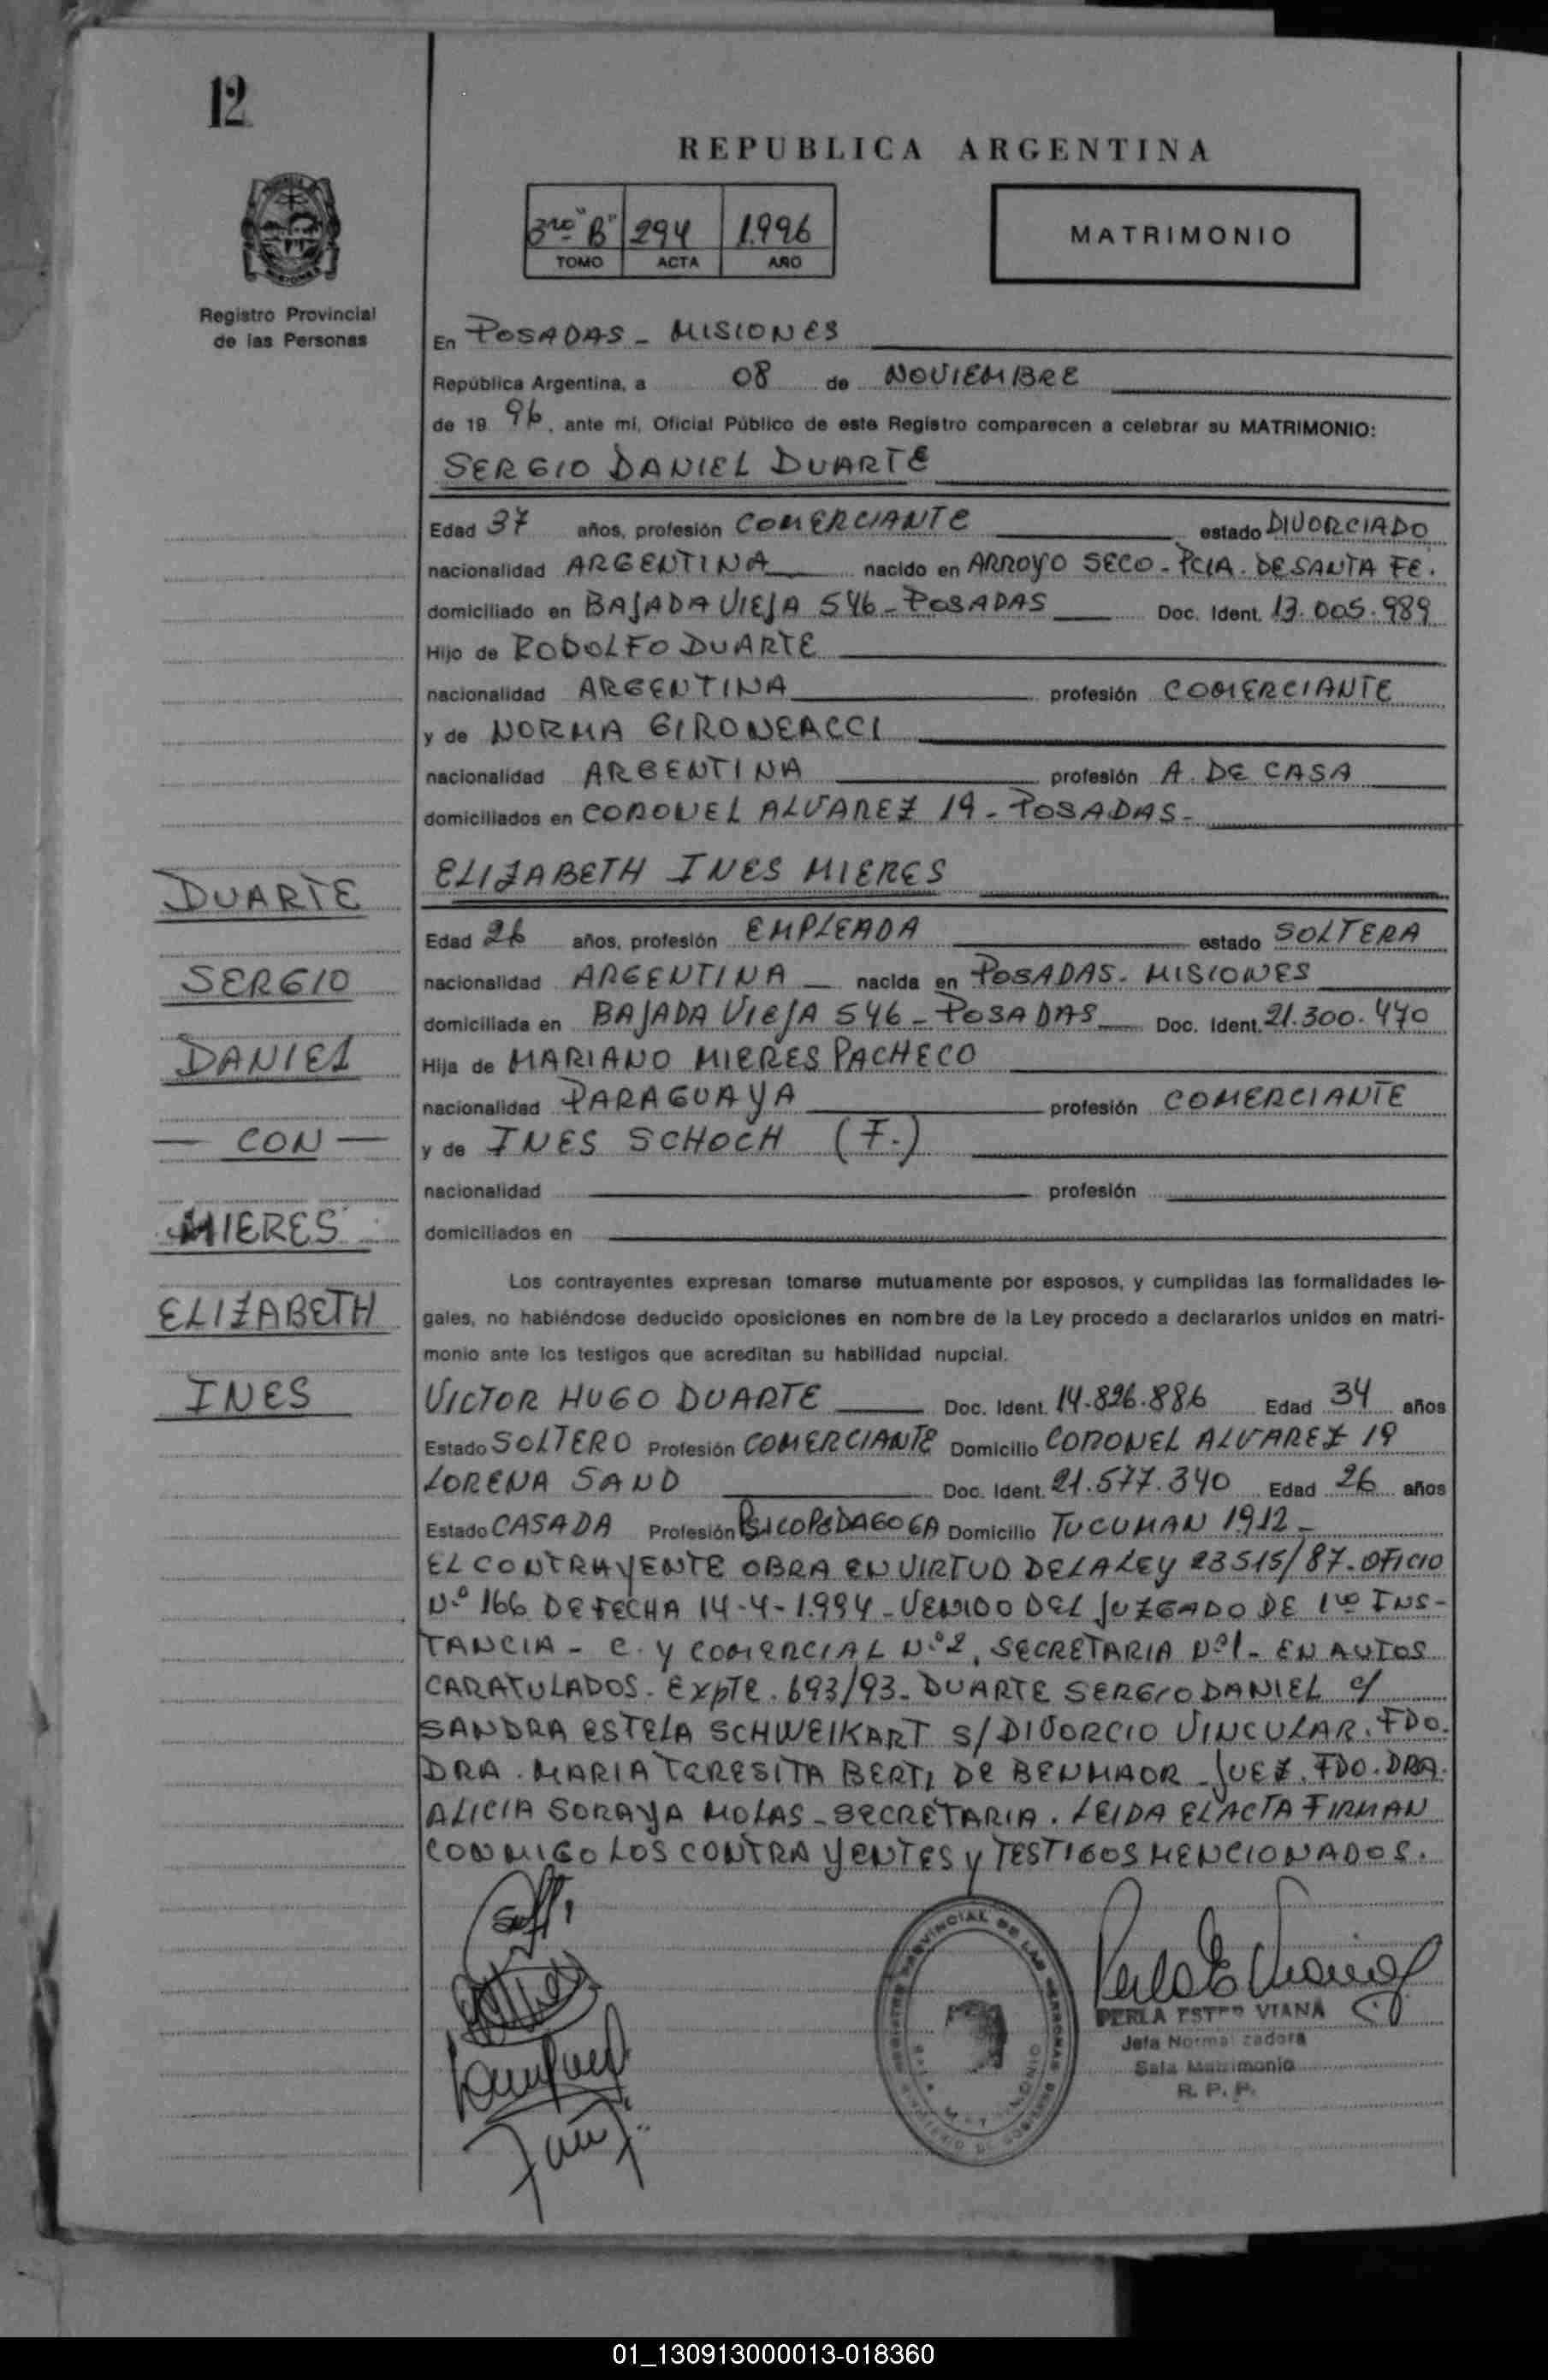 12
REPUBLICA ARGENTINA
3ro "B" 294 1.996
TOMO ACTA AÑO
MATRIMONIO
Registro Provincial
de las Personas
En POSADAS - MISIONES
República Argentina, a 08 de NOVIEMBRE
de 19 96, ante mi, Oficial Público de este Registro comparecen a celebrar su MATRIMONIO:
SERGIO DANIEL DUARTE
Edad 37 años, profesión COMERCIANTE estado DIVORCIADO
nacionalidad ARGENTINA nacido en ARROYO SECO - PCIA. DE SANTA FE.
domiciliado en BAJADA VIEJA 546 - POSADAS Doc. Ident. 13.005.989
Hijo de RODOLFO DUARTE
nacionalidad ARGENTINA profesión COMERCIANTE
y de NORMA GIRONEACCI
nacionalidad ARGENTINA profesión A. DE CASA
domiciliados en CORONEL ALVAREZ 19 - POSADAS -
ELIZABETH INES MIERES
Edad 26 años, profesión EMPLEADA estado SOLTERA
nacionalidad ARGENTINA nacida en POSADAS - MISIONES
domiciliada en BAJADA VIEJA 546 - POSADAS Doc. Ident. 21.300.470
Hija de MARIANO MIERES PACHECO
nacionalidad PARAGUAYA profesión COMERCIANTE
y de INES SCHOCH (F.)
nacionalidad profesión
domiciliados en
DUARTE
SERGIO
DANIEL
— CON —
MIERES
ELIZABETH
INES
Los contrayentes expresan tomarse mutuamente por esposos, y cumplidas las formalidades le-
gales, no habiéndose deducido oposiciones en nombre de la Ley procedo a declararlos unidos en matri-
monio ante los testigos que acreditan su habilidad nupcial.
VICTOR HUGO DUARTE Doc. Ident. 14.826.886 Edad 34 años
Estado SOLTERO Profesión COMERCIANTE Domicilio CORONEL ALVAREZ 19
LORENA SAND Doc. Ident. 21.577.340 Edad 26 años
Estado CASADA Profesión PSICOPEDAGOGA Domicilio TUCUMAN 1912 -
EL CONTRAYENTE OBRA EN VIRTUD DE LA LEY 23515/87 - OFICIO
N.º 166 DE FECHA 14-4-1.994 - VENIDO DEL JUZGADO DE 1ra INS-
TANCIA - C. Y COMERCIAL N.º 2, SECRETARIA Nº 1 - EN AUTOS
CARATULADOS - EXPTE. 693/93 - DUARTE SERGIO DANIEL C/
SANDRA ESTELA SCHWEIKART S/ DIVORCIO VINCULAR. FDO.
DRA. MARIA TERESITA BERTI DE BENMAOR - JUEZ. FDO. DRA.
ALICIA SORAYA MOLAS - SECRETARIA. LEIDA EL ACTA FIRMAN
CONMIGO LOS CONTRAYENTES Y TESTIGOS MENCIONADOS.
PERLA ESTER VIANA
Jefa Normalizadora
Sala Matrimonio
R. P. P.
01_130913000013-018360